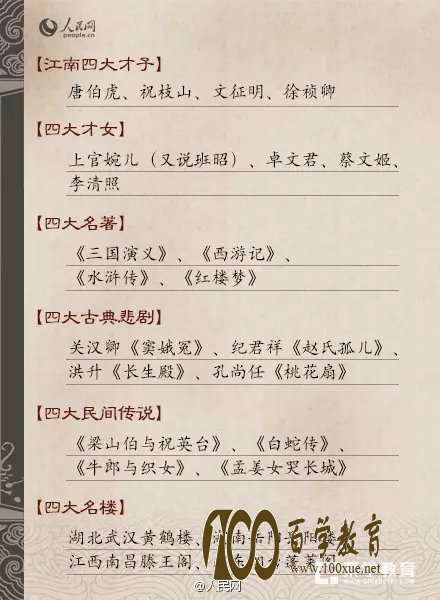 人民网
people.cn
【江南四大才子】
唐伯虎、祝枝山、文征明、徐祯卿
【四大才女】
上官婉儿（又说班昭）、卓文君、蔡文姬、
李清照
【四大名著】
《三国演义》、《西游记》、
《水浒传》、《红楼梦》
【四大古典悲剧】
关汉卿《窦娥冤》、纪君祥《赵氏孤儿》、
洪升《长生殿》、孔尚任《桃花扇》
【四大民间传说】
《梁山伯与祝英台》、《白蛇传》、
《牛郎与织女》、《孟姜女哭长城》
【四大名楼】
湖北武汉黄鹤楼、湖南岳阳岳阳楼、
江西南昌滕王阁、
100 百学教育
www.100xue.net
@人民网
教育